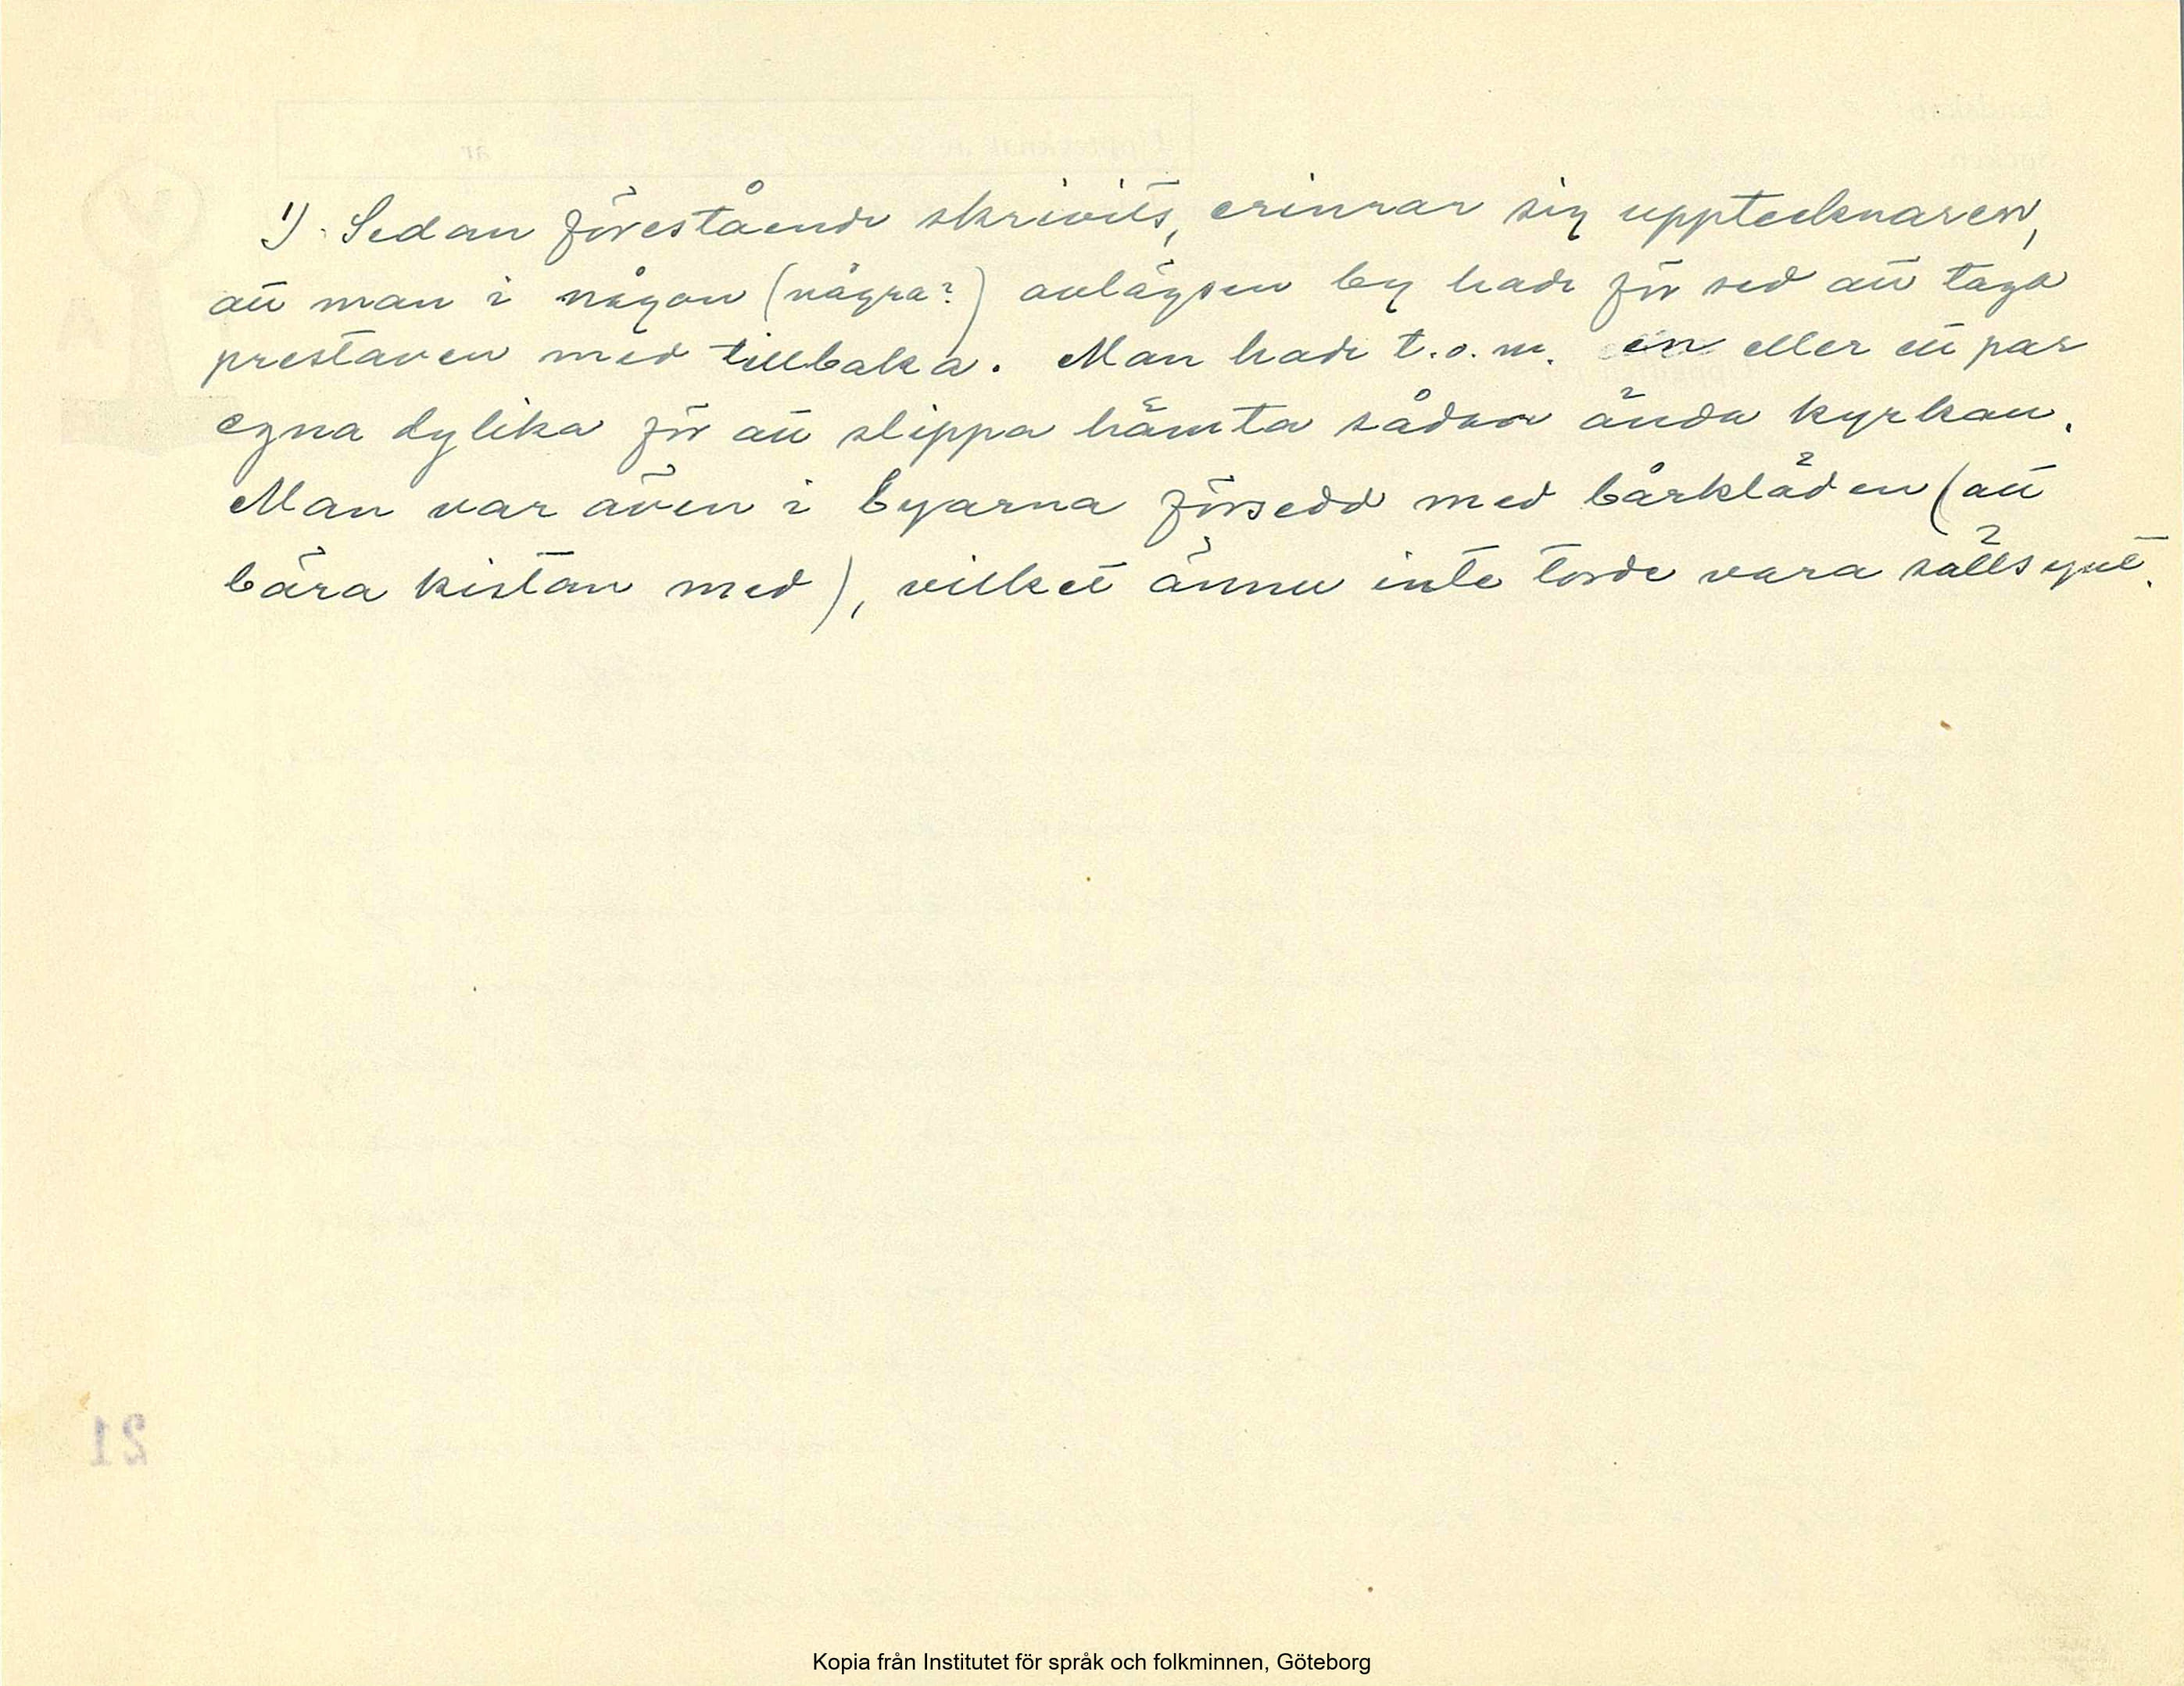 1). Sedan förestående skrivits, erinrar sig upptecknaren,
att man i någon (några?) avlägsen by hade för sed att taga
prestaven med tillbaka. Man hade t.o.m. en eller ett par
egna dylika för att slippa hämta sådan ända kyrkan.
Man var även i byarna försedd med bårkläden (att
bära kistan med), vilket ännu inte torde vara sällsynt.
21
Kopia från Institutet för språk och folkminnen, Göteborg